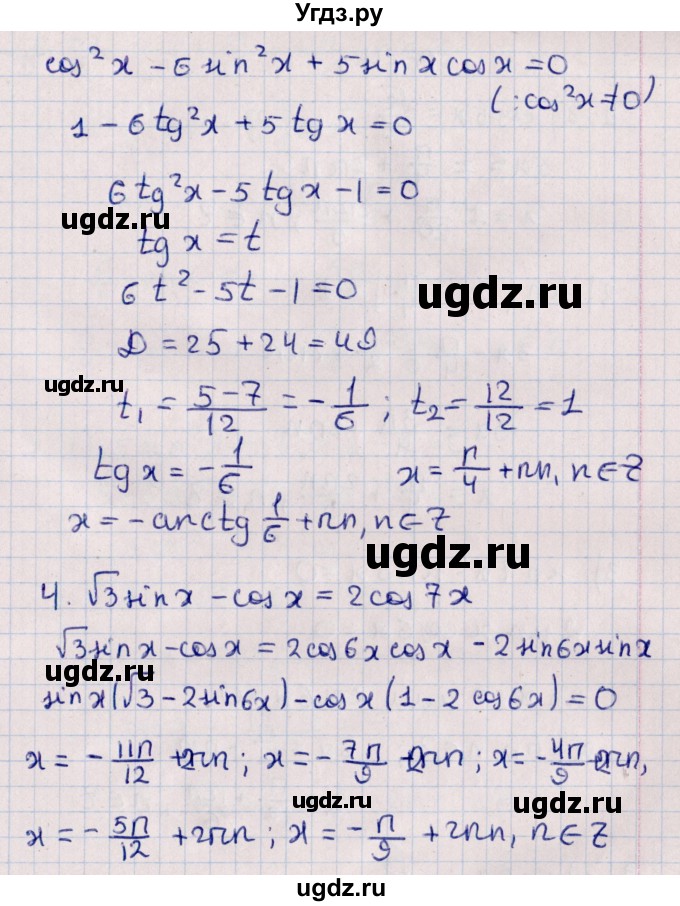 Угдз.ру
cos²x - 6sin²x + 5sinxcosx = 0
(:cos²x≠0)
1 - 6tg²x + 5tgx = 0
6tg²x - 5tgx - 1 = 0
ugdz.ru
tgx = t
6t² - 5t - 1 = 0
ugdz.ru
D = 25 + 24 = 49
ugdz.ru
t₁ = (5-7)/12 = -1/6; t₂ = 12/12 = 1
tgx = -1/6 x = π/4 + πn, n∈Z
x = -arctg 1/6 + πn, n∈Z
ugdz.ru
4. √3sinx - cosx = 2cos7x
√3sinx - cosx = 2cos6xcosx - 2sin6xsinx
sinx(√3 - 2sin6x) - cosx(1 - 2cos6x) = 0
ugdz.ru
x = -11π/12 + 2πn; x = -7π/9 + 2πn; x = -4π/9 + 2πn,
ugdz.ru
x = -5π/12 + 2πn; x = -π/9 + 2πn, n∈Z
ugdz.ru